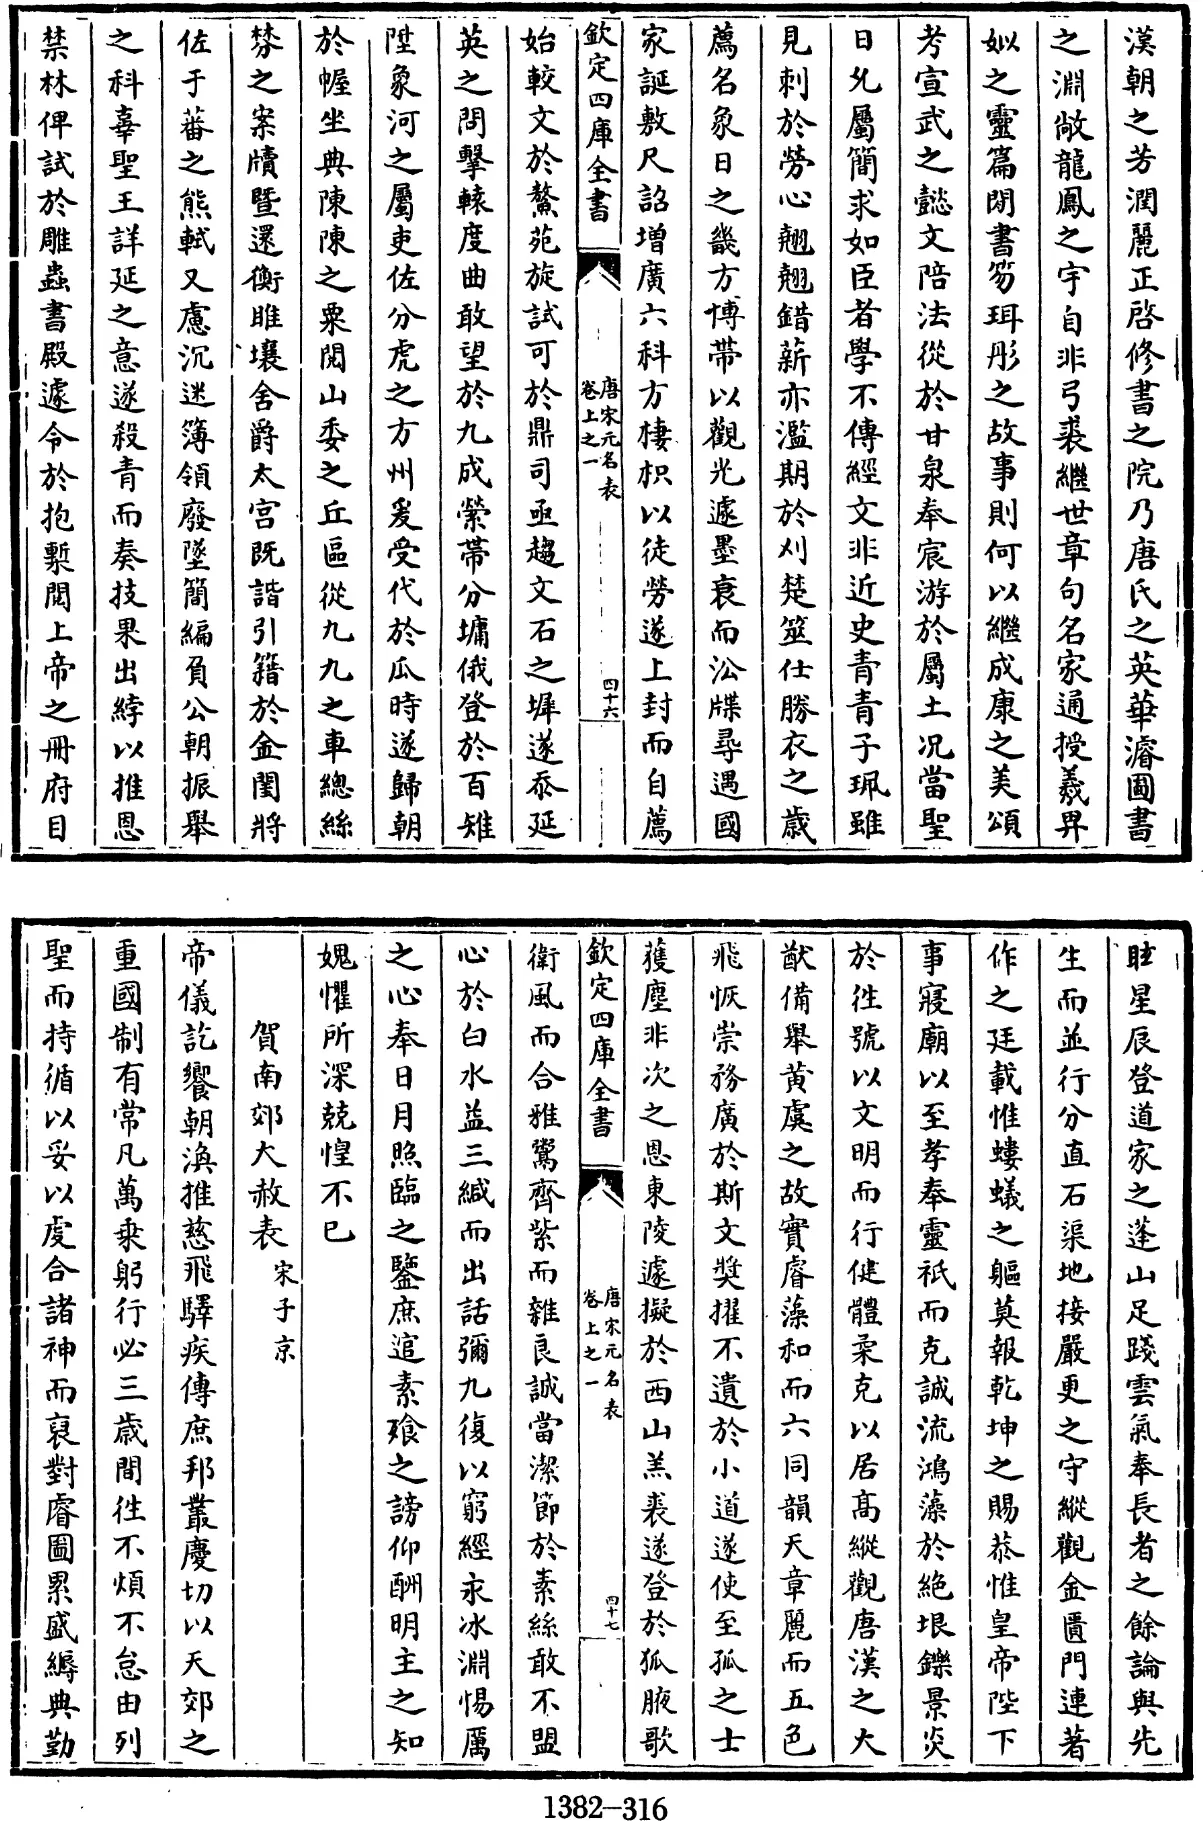 漢朝之芳潤麗正啓修書之院乃唐氏之英華濬圖書
之淵敞龍鳳之宇自非弓裘繼世章句名家通授羲畀
姒之靈篇閉書笏珥彤之故事則何以繼成康之美頌
考宣武之懿文陪法從於甘泉奉宸游於屬土况當聖
日允屬簡求如臣者學不傳經文非近史青青子珮雖
見刺於勞心翹翹錯薪亦濫期於刈楚筮仕勝衣之歲
薦名象日之畿方博帶以觀光遽墨衰而泣牒尋遇國
家誕敷尺詔增廣六科方棲枳以徒勞遂上封而自薦
欽定四庫全書
唐宋元名表
卷上之一
四十六
始較文於鰲苑旋試可於鼎司亟趨文石之墀遂忝延
英之問擊轅度曲敢望於九成縈帶分墉俄登於百雉
陞象河之屬吏佐分虎之方州爰受代於瓜時遂歸朝
於幄坐典陳陳之粟閱山委之丘區從九九之車總絲
棼之案牘暨還衡睢壤舍爵太宫既諧引籍於金閨將
佐于蕃之熊軾又慮沉迷簿領廢墜簡編負公朝振舉
之科辜聖王詳延之意遂殺青而奏技果出綍以推恩
禁林俾試於雕蟲書殿遽令於抱槧閱上帝之冊府目
眩星辰登道家之蓬山足踐雲氣奉長者之餘論與先
生而並行分直石渠地接嚴更之守縱觀金匱門連著
作之廷載惟螻蟻之軀莫報乾坤之賜恭惟皇帝陛下
事寢廟以至孝奉靈祇而克誠流鴻藻於絶垠鑠景炎
於徃號以文明而行健體柔克以居髙縱觀唐漢之大
猷備舉黄虞之故實睿藻和而六同韻天章麗而五色
飛恢崇務廣於斯文奬擢不遺於小道遂使至孤之士
獲塵非次之恩東陵遽擬於西山羔裘遂登於狐腋歌
欽定四庫全書
唐宋元名表
卷上之一
四十七
衛風而合雅鸞齊紫而雜良誠當潔節於素絲敢不盟
心於白水益三緘而出話彌九復以窮經永冰淵惕厲
之心奉日月照臨之鑒庶逭素飱之謗仰酬明主之知
媿懼所深兢惶不已
賀南郊大赦表 宋子京
帝儀訖饗朝渙推慈飛驛疾傳庶邦叢慶切以天郊之
重國制有常凡萬乗躬行必三歲間徃不煩不怠由列
聖而持循以妥以䖍合諸神而裒對睿圖累盛縟典勤
1382-316